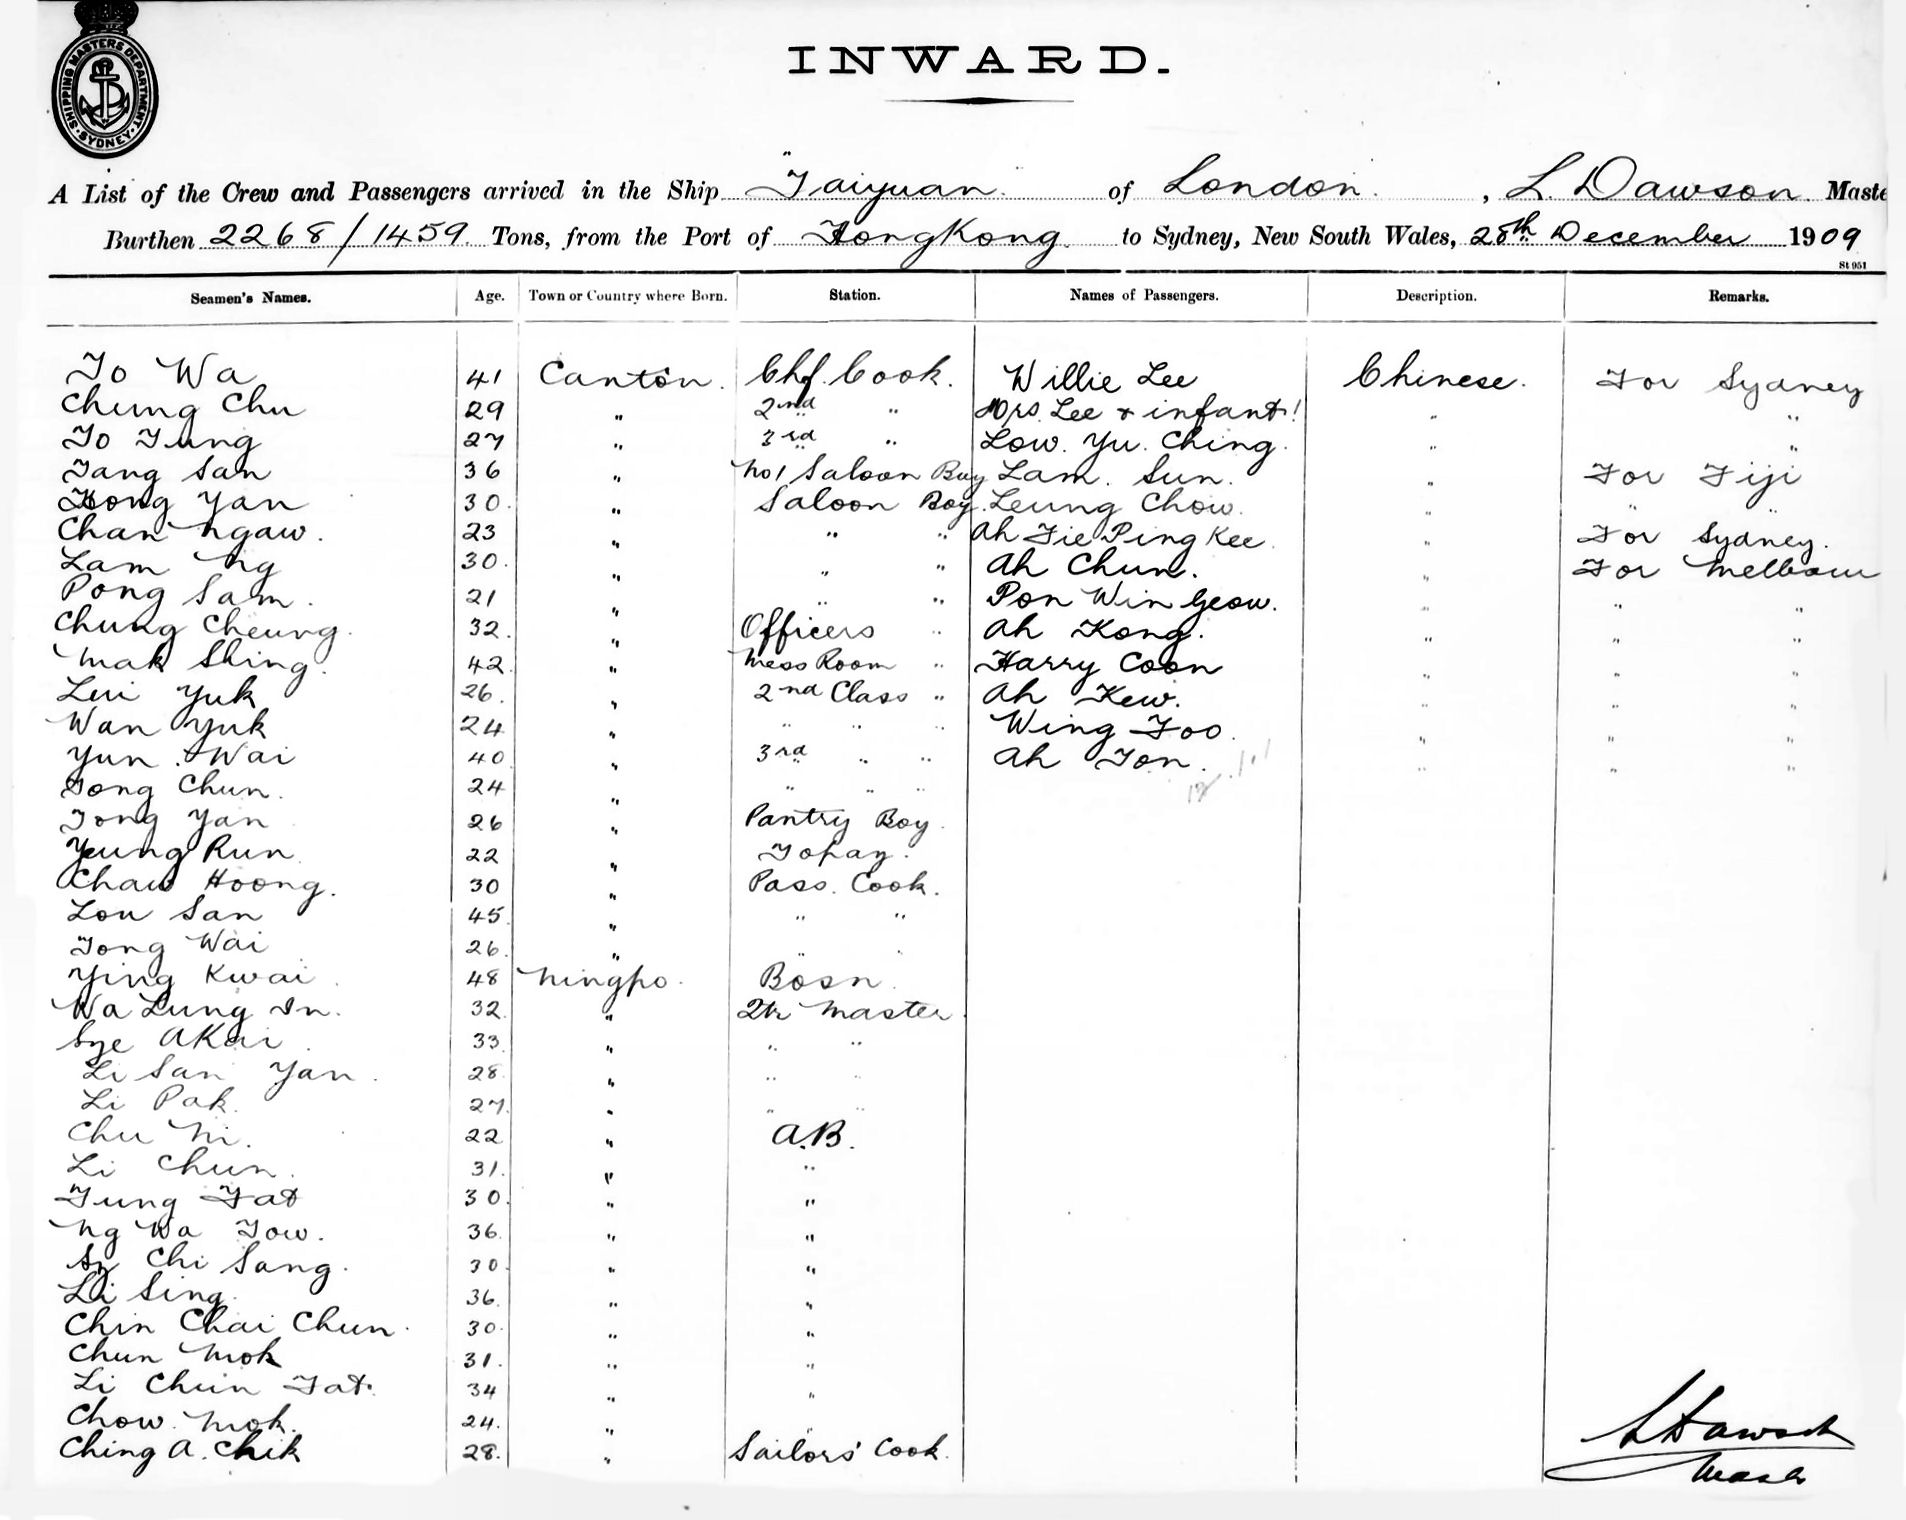 SHIPPING MASTERS DEPARTMENT · SYDNEY ·
INWARD.
A List of the Crew and Passengers arrived in the Ship Taiyuan of London, L. Dawson Maste
Burthen 2268/1459 Tons, from the Port of HongKong to Sydney, New South Wales, 28th December 1909
St 951
Seamen's Names. Age. Town or Country where Born. Station. Names of Passengers. Description. Remarks.
To Wa 41 Canton. Chf. Cook. Willie Lee Chinese. For Sydney
Chung Chu 29 " 2nd " Mrs. Lee & infant! " "
To Tung 27 " 3rd " Low. Yu. Ching. " "
Tang San 36 " No 1 Saloon Boy Lam. Sun. " For Fiji
Hong Yan 30. " Saloon Boy. Leung Chow. " " "
Chan Ngaw. 23 " " " Ah Fie Ping Kee. " For Sydney.
Lam Ng 30. " " " Ah Chun. " For Melbour
Pong Sam. 21 " " " Pon Win Geow. " " "
Chung Cheung. 32. " Officers " Ah Kong. " " "
Mak Shing. 42. " Mess Room " Harry Coon " " "
Lui Yuk 26. " 2nd Class " Ah Kew. " " "
Wan Yuk 24 " " " " Wing Foo. " " "
Yun Wai 40 " 3rd " " Ah Ton. " " "
Tong Chun. 24 " " " "
Tong Yan 26 " Pantry Boy.
Yeung Run 22 " Topaz.
Chaw Hoong. 30 " Pass. Cook.
Lou San 45. " " "
Tong Wai 26. " " "
Ying Kwai 48 Ningpo. Bosn.
Wa Lung In. 32. " Qtr Master.
Sye AKai 33 " " "
Li San Yan. 28 " " "
Li Pak. 27. " " "
Chu Ni. 22 " A.B.
Li Chun. 31. " "
Tung Fat 30. " "
Ng Wa Tow. 36. " "
Sy Chi Sang. 30. " "
Li Sing. 36. " "
Chin Chai Chun. 30. " "
Chun Mok 31. " "
Li Chun Fat. 34 " "
Chow Mok. 24. " "
Ching A. Chik 28. " Sailors' Cook.
L Dawson
Master